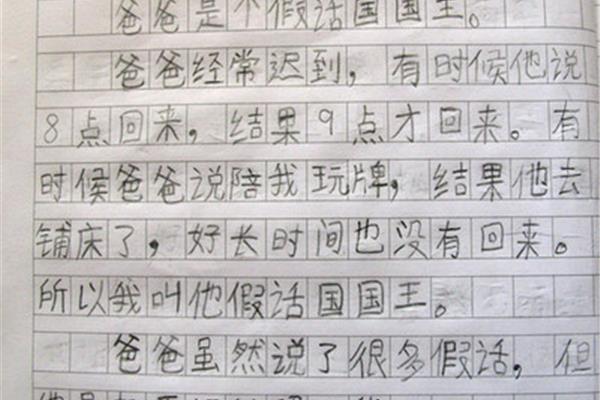 爸爸是个假话国国王。
爸爸经常迟到，有时候他说
8点回来，结果9点才回来。有
时候爸爸说陪我玩牌，结果他去
铺床了，好长时间也没有回来。
所以我叫他假话国国王。
爸爸虽然说了很多假话，但